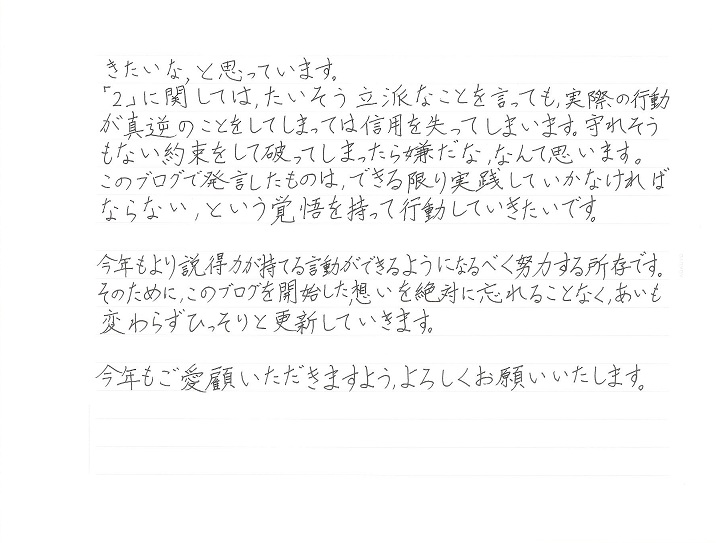 きたいな,と思っています。
「2」に関しては,たいそう立派なことを言っても,実際の行動
が真逆のことをしてしまっては信用を失ってしまいます。守れそう
もない約束をして破ってしまったら嫌だな,なんて,思います。
このブログで発言したものは,できる限り実践していかなければ
ならない,という覚悟を持って行動していきたいです。
今年もより説得力が持てる言動ができるようになるべく努力する所存です。
そのために,このブログを開始した,想いを絶対に忘れることなく,あいも
変わらずひっそりと更新していきます。
今年もご愛顧いただきますよう,よろしくお願いいたします。